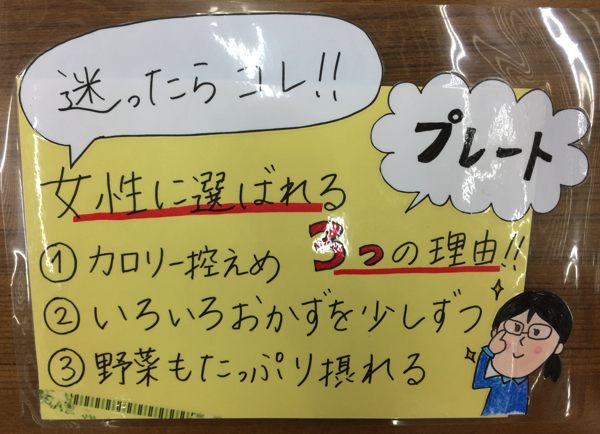 迷ったらコレ!!
プレート
女性に選ばれる
3つの理由!!
①カロリー控えめ
②いろいろおかずを少しずつ
③野菜もたっぷり摂れる